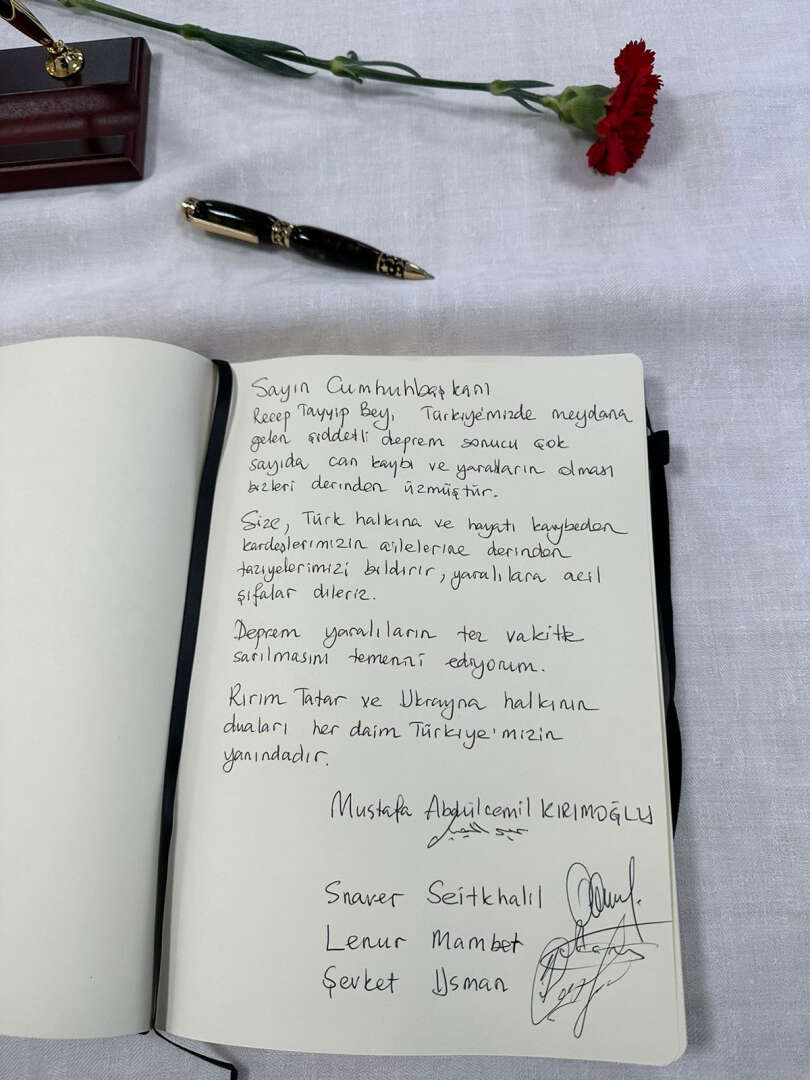 Sayın Cumhuhbaşkanı
Recep Tayyip Bey, Türkiye'mizde meydana
gelen şiddetli deprem sonucu çok
sayıda can kaybı ve yaralıların olması
bizleri derinden üzmüştür.
Size, Türk halkına ve hayatı kaybeden
kardeşlerimizin ailelerine derinden
taziyelerimizi bildirir, yaralılara acil
şifalar dileriz.
Deprem yaralıların tez vakitte
sarılmasını temenni ediyorum.
Kırım Tatar ve Ukrayna halkının
duaları her daim Türkiye'mizin
yanındadır.
Mustafa Abdülcemil KIRIMOĞLU
Snaver Seitkhalil
Lenur Mambet
Şevket Usman